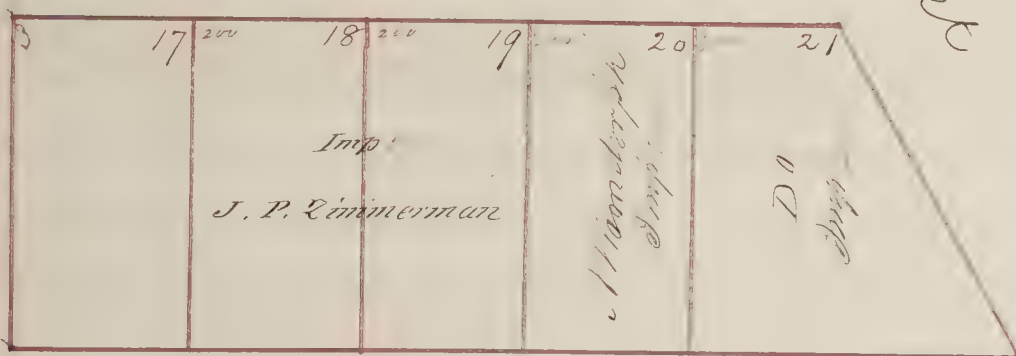 3 17 200 18 200 19 20 21
Imp.
J. P. Zimmerman
Imp.
Do
Imp.